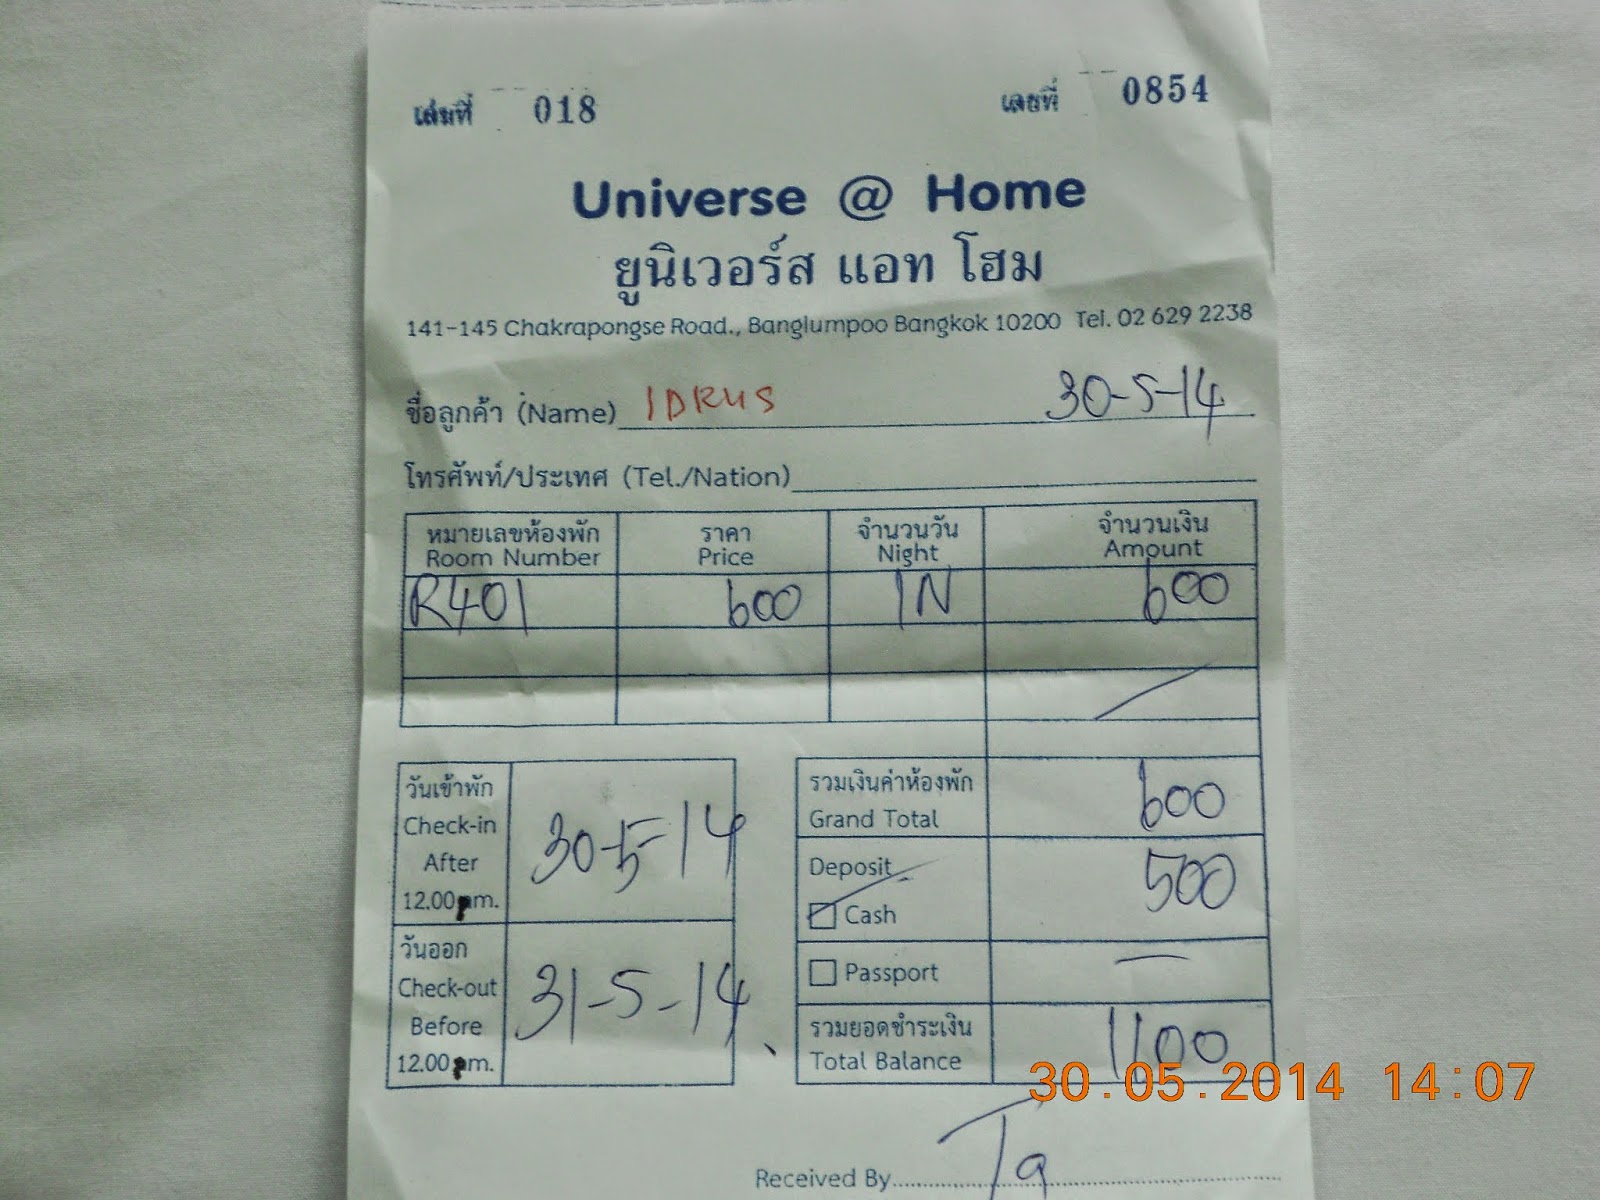 เล่มที่ 018 เลขที่ 0854
Universe @ Home
ยูนิเวอร์ส แอท โฮม
141-145 Chakrapongse Road., Banglumpoo Bangkok 10200 Tel. 02 629 2238
ชื่อลูกค้า (Name) IDRUS 30-5-14
โทรศัพท์/ประเทศ (Tel./Nation)
หมายเลขห้องพัก ราคา จำนวนวัน จำนวนเงิน
Room Number Price Night Amount
R401 600 1N 600
วันเข้าพัก
Check-in
After
12.00pm.
30-5-14
วันออก
Check-out
Before
12.00pm.
31-5-14
รวมเงินค่าห้องพัก
Grand Total 600
Deposit 500
Cash
Passport
รวมยอดชำระเงิน
Total Balance 1100
30.05.2014 14:07
Received By Ta